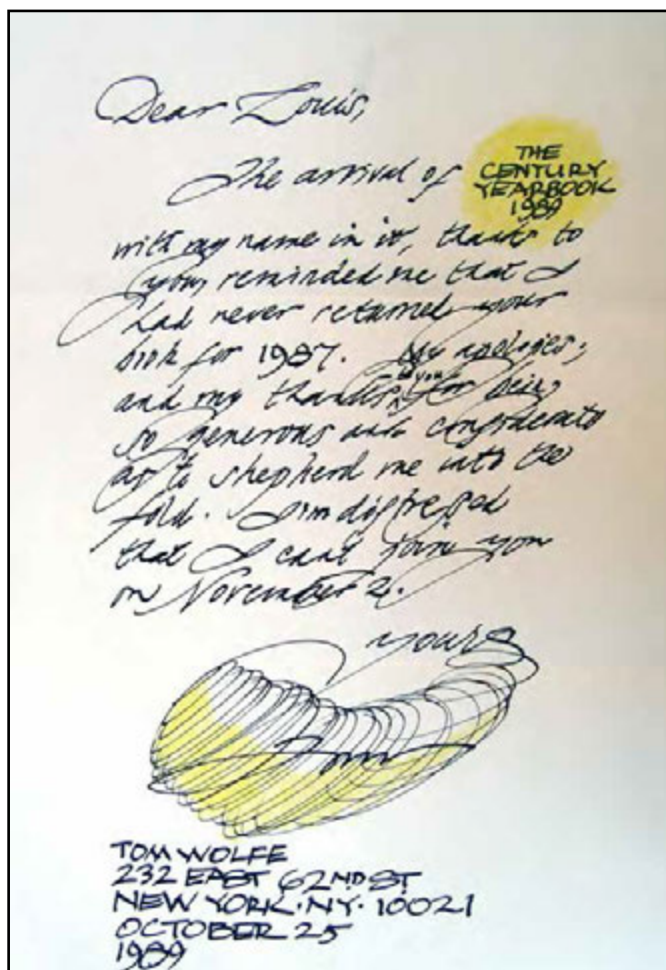 Dear Louis,
The arrival of THE
CENTURY
YEARBOOK
1989
with my name in it, thanks to
you, reminded me that I
had never returned your
book for 1987. My apologies;
and my thanks to you for being
so generous and considerate
as to shepherd me into the
fold. I'm distressed
that I can't join you
on November 2.
Yours
Tom
TOM WOLFE
232 EAST 62ND ST
NEW YORK·NY·10021
OCTOBER 25
1989